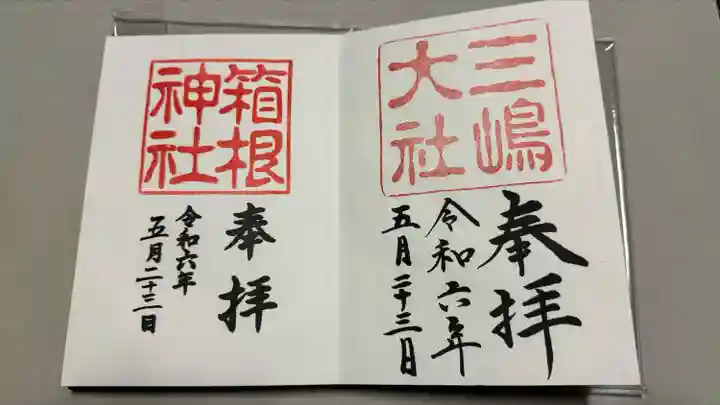 三嶋
大社
奉拝
令和六年
五月二十三日
箱根
神社
奉拝
令和六年
五月二十三日